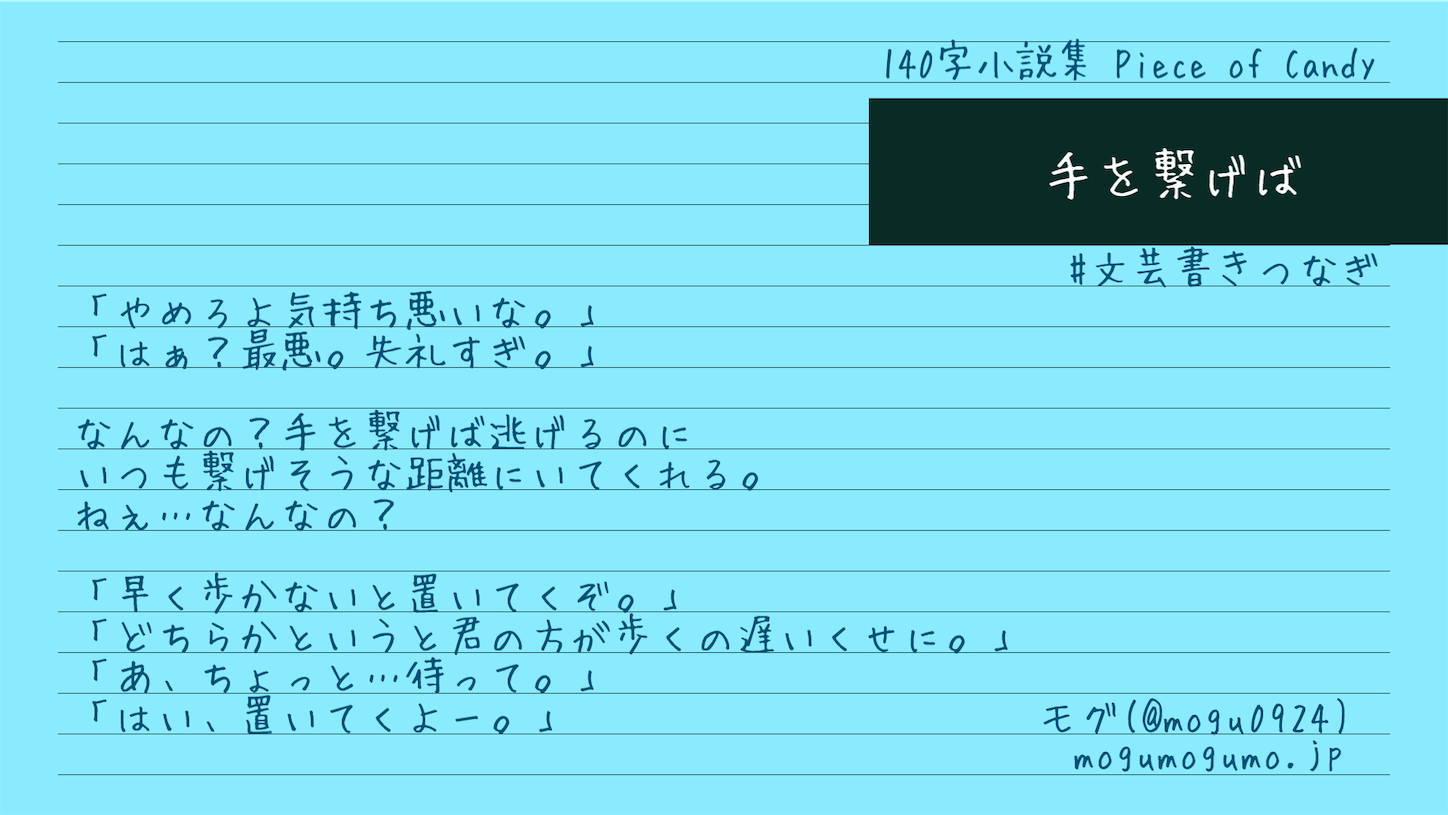 140字小説集 Piece of Candy
手を繋げば
#文芸書きつなぎ
「やめろよ気持ち悪いな。」
「はぁ？最悪。失礼すぎ。」
なんなの？手を繋げば逃げるのに
いつも繋げそうな距離にいてくれる。
ねぇ…なんなの？
「早く歩かないと置いてくぞ。」
「どちらかというと君の方が歩くの遅いくせに。」
「あ、ちょっと…待って。」
「はい、置いてくよー。」
モグ(@mogu0924)
mogumogumo.jp